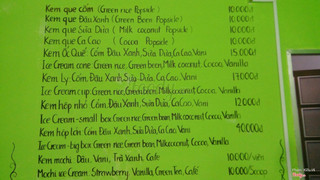 Kem que Cốm (Green rice Popside) 10.000đ
Kem que Đậu Xanh (Green Been Popside) 10.000đ
Kem que Sữa Dừa (Milk coconut Popside) 10.000đ
Kem que Ca Cao (Cocoa Popside) 10.000đ
Kem Ốc Quế: Cốm, Đậu Xanh, Sữa Dừa, Ca Cao, Vani 15.000đ
Ice Cream cone: Green rice, Green bean, Milk, coconut, Cocoa, Vanilla
Kem Ly: Cốm, Đậu Xanh, Sữa Dừa, Ca Cao, Vani 17.000đ
Ice Cream cup: Green rice, Green bean, Milk, coconut, Cocoa, Vanilla
Kem hộp nhỏ: Cốm, Đậu Xanh, Sữa Dừa, Ca Cao, Vani 12.000đ
Ice Cream-small box: Green rice, Green bean, Milk, coconut, Cocoa, Vanilla
Kem hộp lớn: Cốm, Đậu Xanh, Sữa Dừa, Ca Cao, Vani 40.000đ
Ice Cream-big box: Green rice, Green bean, Milk, coconut, Cocoa, Vanilla
Kem mochi: Dâu, Vani, Trà Xanh, Cafe 10.000/viên
Mochi ice Cream: Strawberry, Vanilla, Green Tea, Café 10.000/Scoop